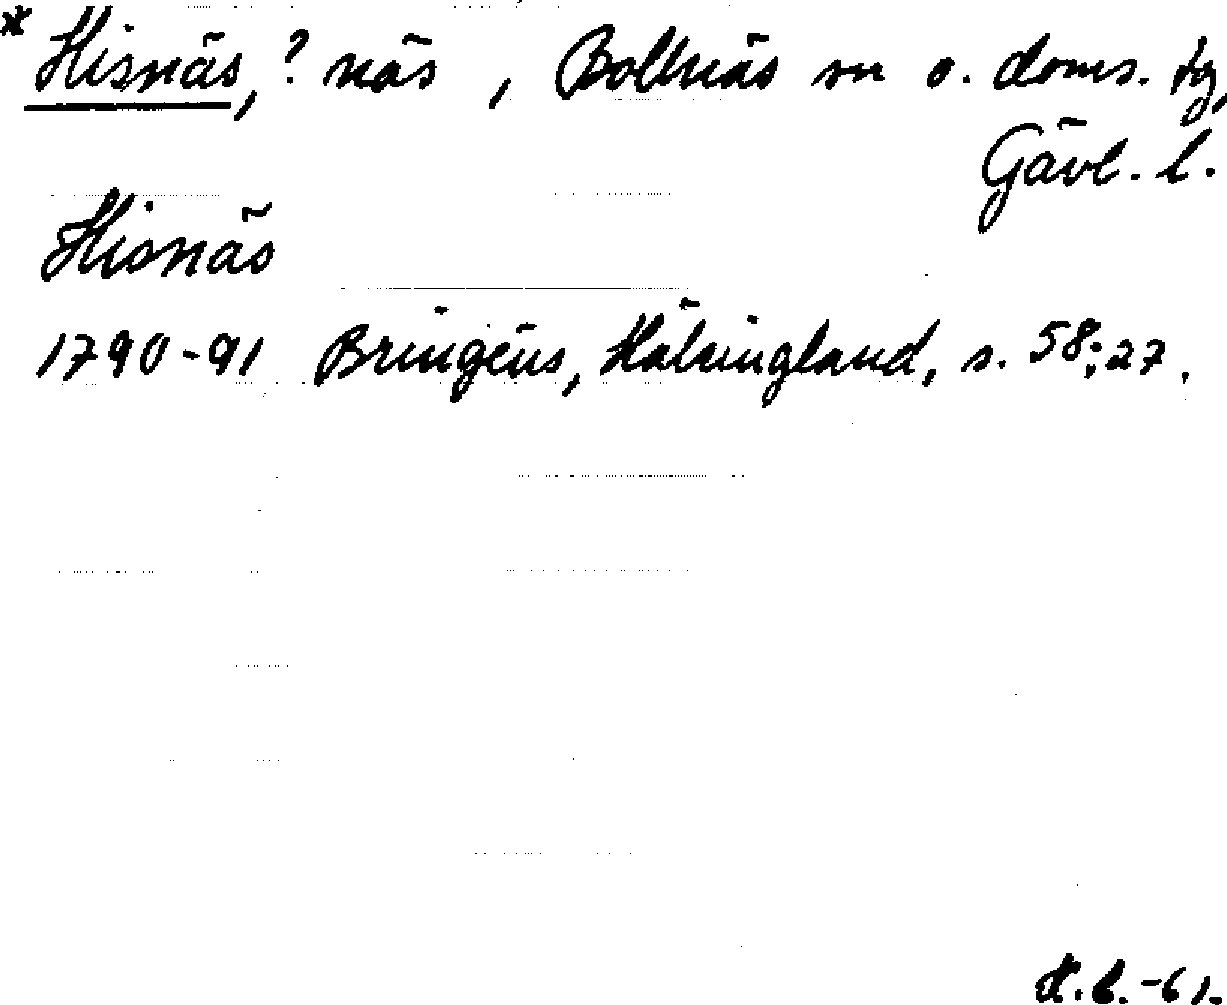 * Hisnäs, ? näs , Bollnäs sn o. doms. tg,
Gävl. l.
Hisnäs
1790-91 Bringéus, Hälsingland, s. 58:27.
H.b.-61.